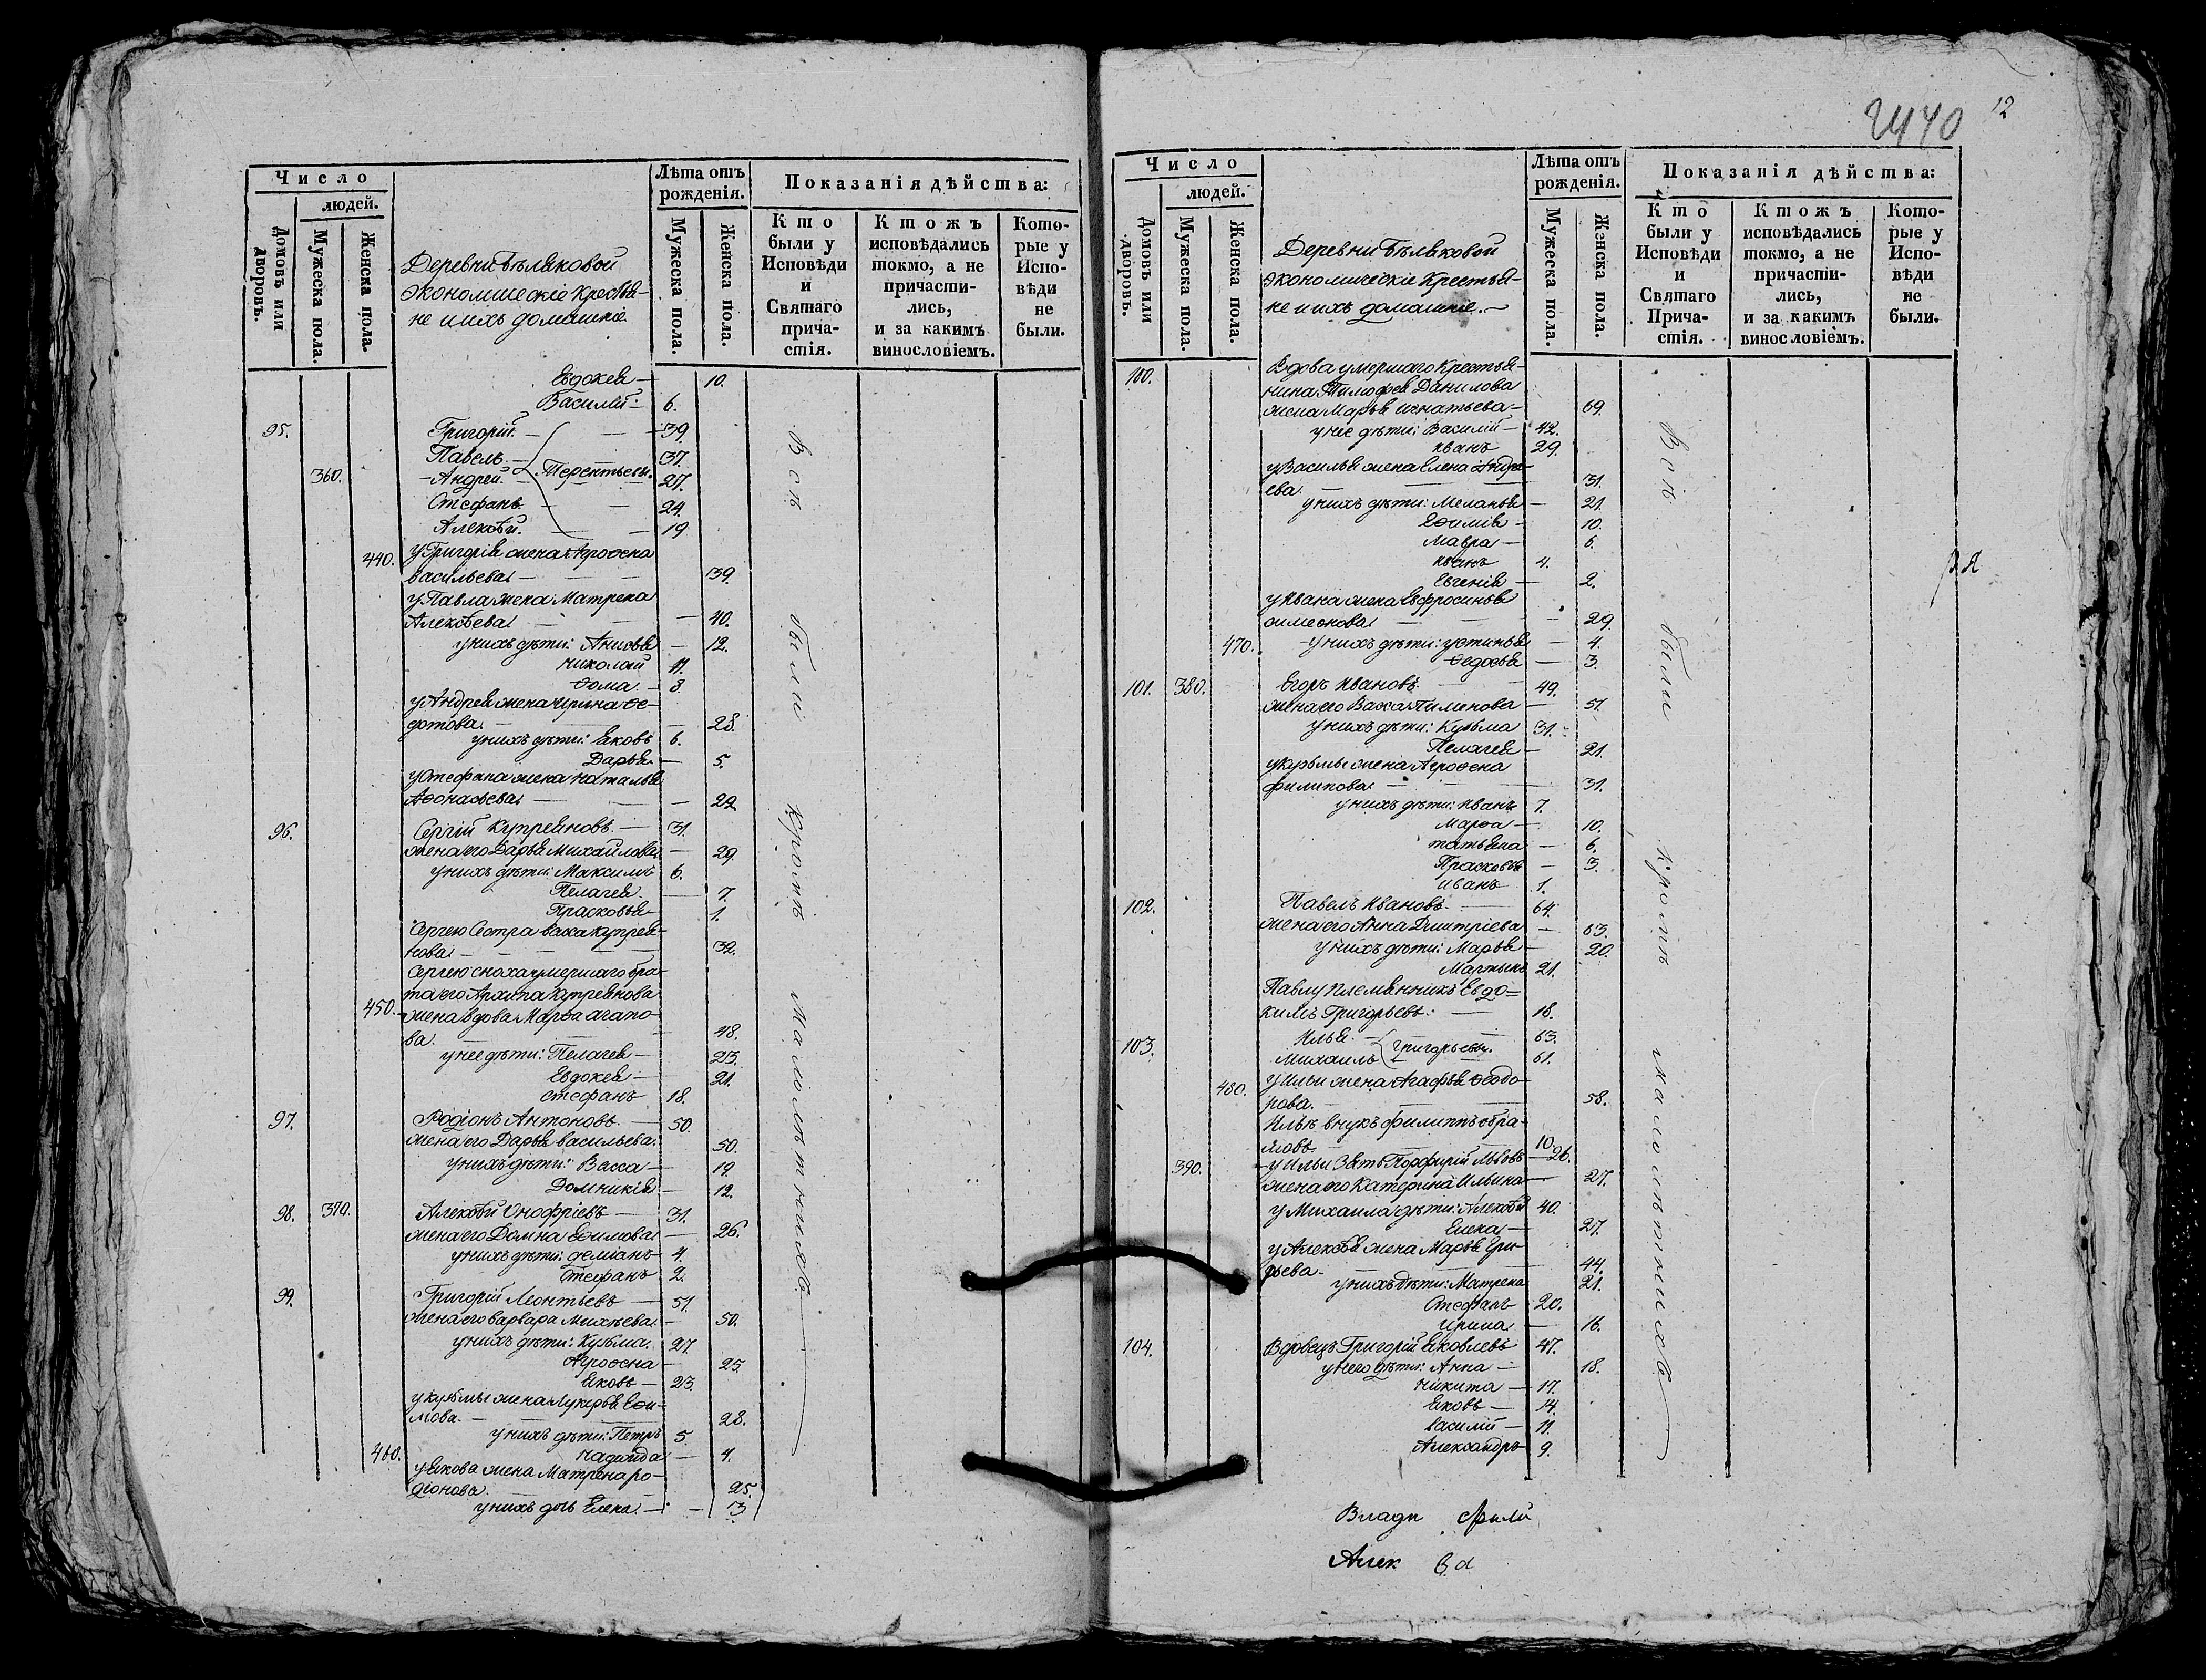 2440 12
Число
людей.
Домовъ или дворовъ.
Мужеска пола.
Женска пола.
Деревни Бѣляковой
экономическіе Крестья-
не и ихъ домашніе.
Лѣта отъ рожденія.
Мужеска пола.
Женска пола.
Показанія дѣйства:
Кто были у Исповѣди и Святаго причастія.
Ктожъ исповѣдались токмо, а не причастились, и за какимъ винословіемъ.
Которые у Исповѣди не были.
Евдокея — 10.
Василій — 6.
95. Григорій — 39.
Павелъ — 37.
360. Андрей — Терентьевы. 27.
Стефанъ — 24.
Алексѣй. — 19.
440. у Григорія жена Агрофена
васильева — 39.
у Павла жена Матрена
Алексѣева — 40.
у нихъ дѣти: Анисья — 12.
николай 11.
Ѳома. — 8.
у Андрея жена Ирина Ѳе-
фртова — 28.
у нихъ дѣти: Яковъ 6.
Дарья — 5.
у Стефана жена наталья
Аѳонасьева — 22
96. Сергій Купреяновъ. — 31.
жена его Дарья Михайлова — 29
у нихъ дѣти: Максимъ 6.
Пелагея. — 7.
Прасковья 1.
Сергею Сестра васа купрея-
нова — 32.
Сергею сноха умершаго бра-
та его Архипа Купреянова
450. жена вдова Марѳа агапо-
ва. — 48.
у нее дѣти: Пелагея — 23.
Евдокея — 21.
стефанъ 18.
97. Родіонъ Антоновъ. — 50.
жена его Дарья васильева. 50.
у нихъ дѣти: Васса — 19.
Домникія — 12.
98. 370. Алексѣй Онофріевъ — 31.
жена его Домна Еѳимова — 26.
у нихъ дѣти: деміанъ 4.
Стефанъ 2.
99. Григорій Леонтьевъ — 51.
жена его варвара Михѣева — 50.
у нихъ дѣти: Кузьма. 27
Агроѳена — 25.
Яковъ — 23.
у кузьмы жена Лукерья Еѳи-
мова. — 28.
у нихъ дѣти: Петръ 5.
460. надежда — 4.
у Якова жена Матрена ро-
діонова. — 25.
у нихъ дочь Елена. — 3
Всѣ были кромѣ малолѣтнихъ
Число
людей.
Домовъ или дворовъ.
Мужеска пола.
Женска пола.
Деревни Бѣляковой
экономическіе Крестья-
не и ихъ домашніе. —
Лѣта отъ рожденія.
Мужеска пола.
Женска пола.
Показанія дѣйства:
Кто были у Исповѣди и Святаго Причастія.
Ктожъ исповѣдались токмо, а не причастились, и за какимъ винословіемъ.
Которые у Исповѣди не были.
100. Вдова умершаго Крестья-
нина Тимофея Данилова
жена Марья игнатьева — 69.
у нее дѣти: Василій — 42.
иванъ 29.
у Василья жена Елена Андре-
ева. 31.
у нихъ дѣти: Меланья — 21.
Еѳимія — 10.
Мавра — 6.
иванъ 4.
Евгенія — 2.
у Ивана жена Евфросинья
симеонова — 29.
470. у нихъ дѣти: устинья — 4.
Ѳедосья — 3.
101. 380. Егоръ Ивановъ. 49.
жена его Васса Пименова — 51.
у нихъ дѣти: Кузьма 31.
Пелагея — 21.
у кузьмы жена Агроѳена
филипова — 31.
у нихъ дѣти: Иванъ 7.
Марѳа — 10.
татьяна — 6.
Прасковья — 3.
иванъ 1.
102. Павелъ Ивановъ. — 64.
жена его Анна Дмитріева — 63.
у нихъ дѣти: Марья — 20.
Мартынъ 21.
Павлу племянникъ Евдо=
кимъ Григорьевъ. — 18.
103. Илья — 63.
Михаилъ Григорьевы. 61.
480. у Ильи жена Агафья Ѳеодо-
рова. — 58.
Ильѣ внукъ филиппъ
10.
390. у Ильи Зять Порфирій Львовъ — 26.
жена его Катерина Ильина — 27.
у Михаила дѣти: Алексѣй 40.
Елена — 27.
у Алексѣя жена Марья
рьева. — 44.
у нихъ дѣти: Матрена 21.
Стефанъ 20.
Ирина — 16.
104. Вдовецъ Григорій Яковлевъ 47.
у него дѣти: Анна — 18.
никита — 17.
Яковъ — 14.
василій — 11.
Александръ 9.
Всѣ были кромѣ малолѣтнихъ
Влади Фили
Алек